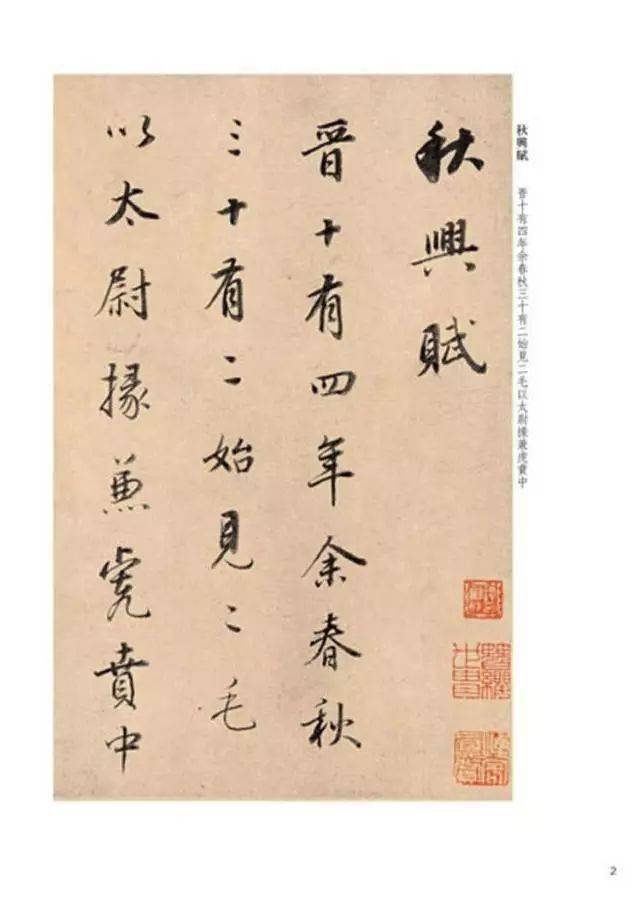 秋興賦
晋十有四年余春秋
三十有二始見二毛
以太尉掾兼虎賁中
秋興賦　晋十有四年余春秋三十有二始見二毛以太尉掾兼虎賁中
2